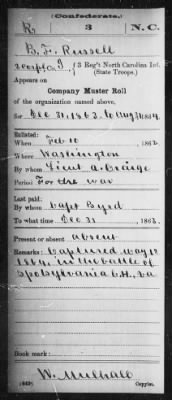 (Confederate.)
R 3 N.C.
B. F. Russell
3 Reg't North Carolina Inf.
(State Troops.)
Appears on
Company Muster Roll
of the organization named above,
for Dec 31, 1863 to Aug 31, 1864.
Enlisted:
When Feb 10, 186
Where Washington
By whom Lieut
Period For the war
Last paid:
By whom Capt Byrd
To what time Dec 31, 1863.
Present or absent absent
Remarks: Captured May 12
1864 in the battle of
Spotsylvania C.H., Va
Book mark:
W. Mulhall
Copyist.